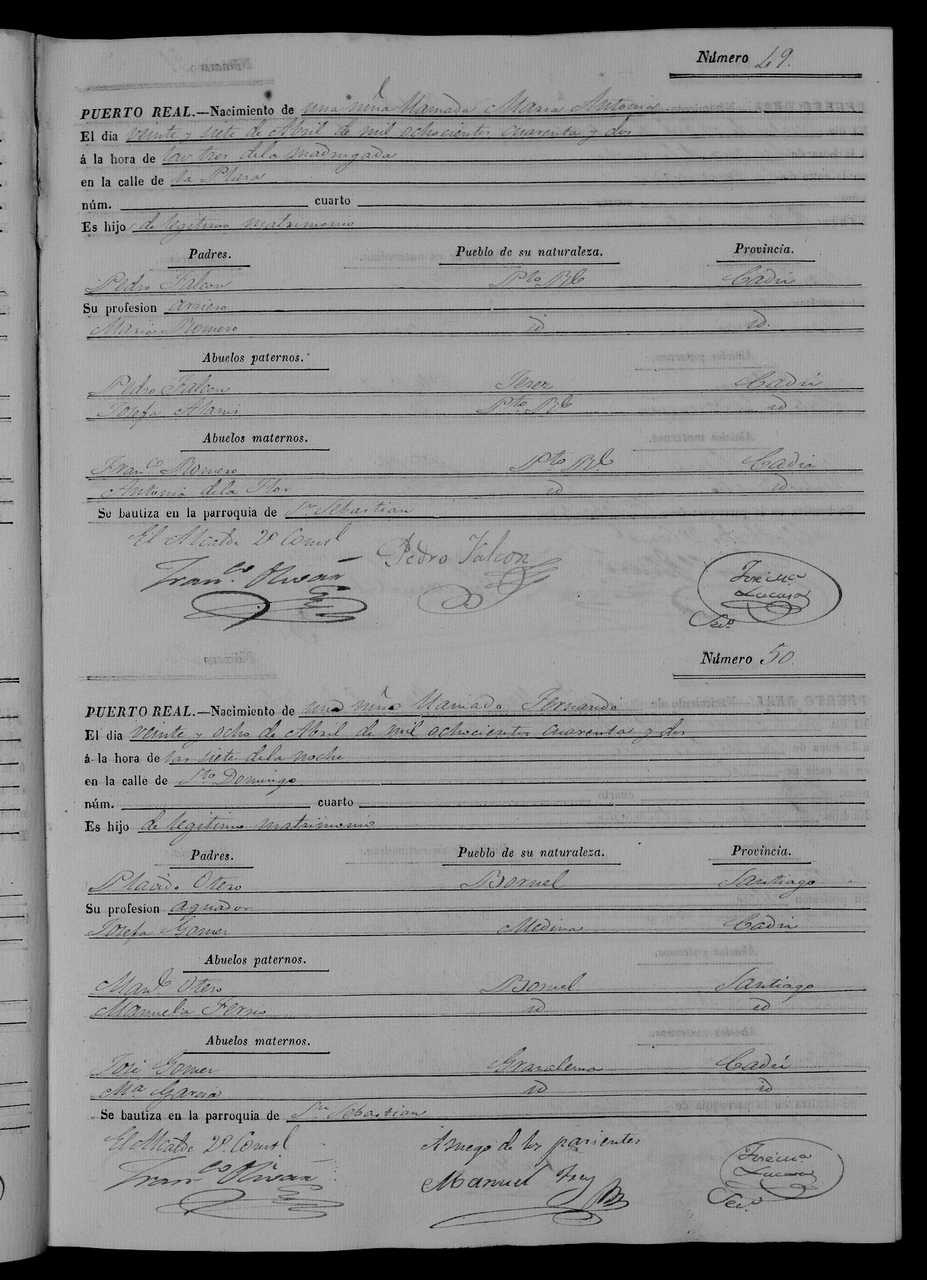 Número 49.
PUERTO REAL.—Nacimiento de una niña llamada Maria Antonia
El dia veinte y siete de Abril de mil ochocientos cuarenta y dos
á la hora de las tres dela madrugada
en la calle de la Plaza
núm. cuarto
Es hijo de legitimo matrimonio
Padres. Pueblo de su naturaleza. Provincia.
Pedro Falcon Pto Rl Cadiz
Su profesion arriero
Maria Romero id id.
Abuelos paternos.
Pedro Falcon Jerez Cadiz
Josefa Pto Rl id
Abuelos maternos.
Franco Romero Pto Rl Cadiz
Antonia dela Flor id id.
Se bautiza en la parroquia de Sn Sebastian
El Alcalde 2º Consl
Franco Pedro Falcon
José Ma
Srio.
Número 50.
PUERTO REAL.—Nacimiento de una niña llamada Fernanda
El dia veinte y ocho de Abril de mil ochocientos cuarenta y dos
á la hora de las siete dela noche
en la calle de Sto Domingo
núm. cuarto
Es hijo de legitimo matrimonio
Padres. Pueblo de su naturaleza. Provincia.
Placido Otero Santiago
Su profesion aguador
Josefa Gomez Medina Cadiz
Abuelos paternos.
Manl Otero Santiago
Manuela id id
Abuelos maternos.
José Gomez Grazalema Cadiz
Ma Garcia id id
Se bautiza en la parroquia de Sn Sebastian
El Alcalde 2º Consl A ruego de los parientes
Franco Manuel Frey
José Ma
Srio.